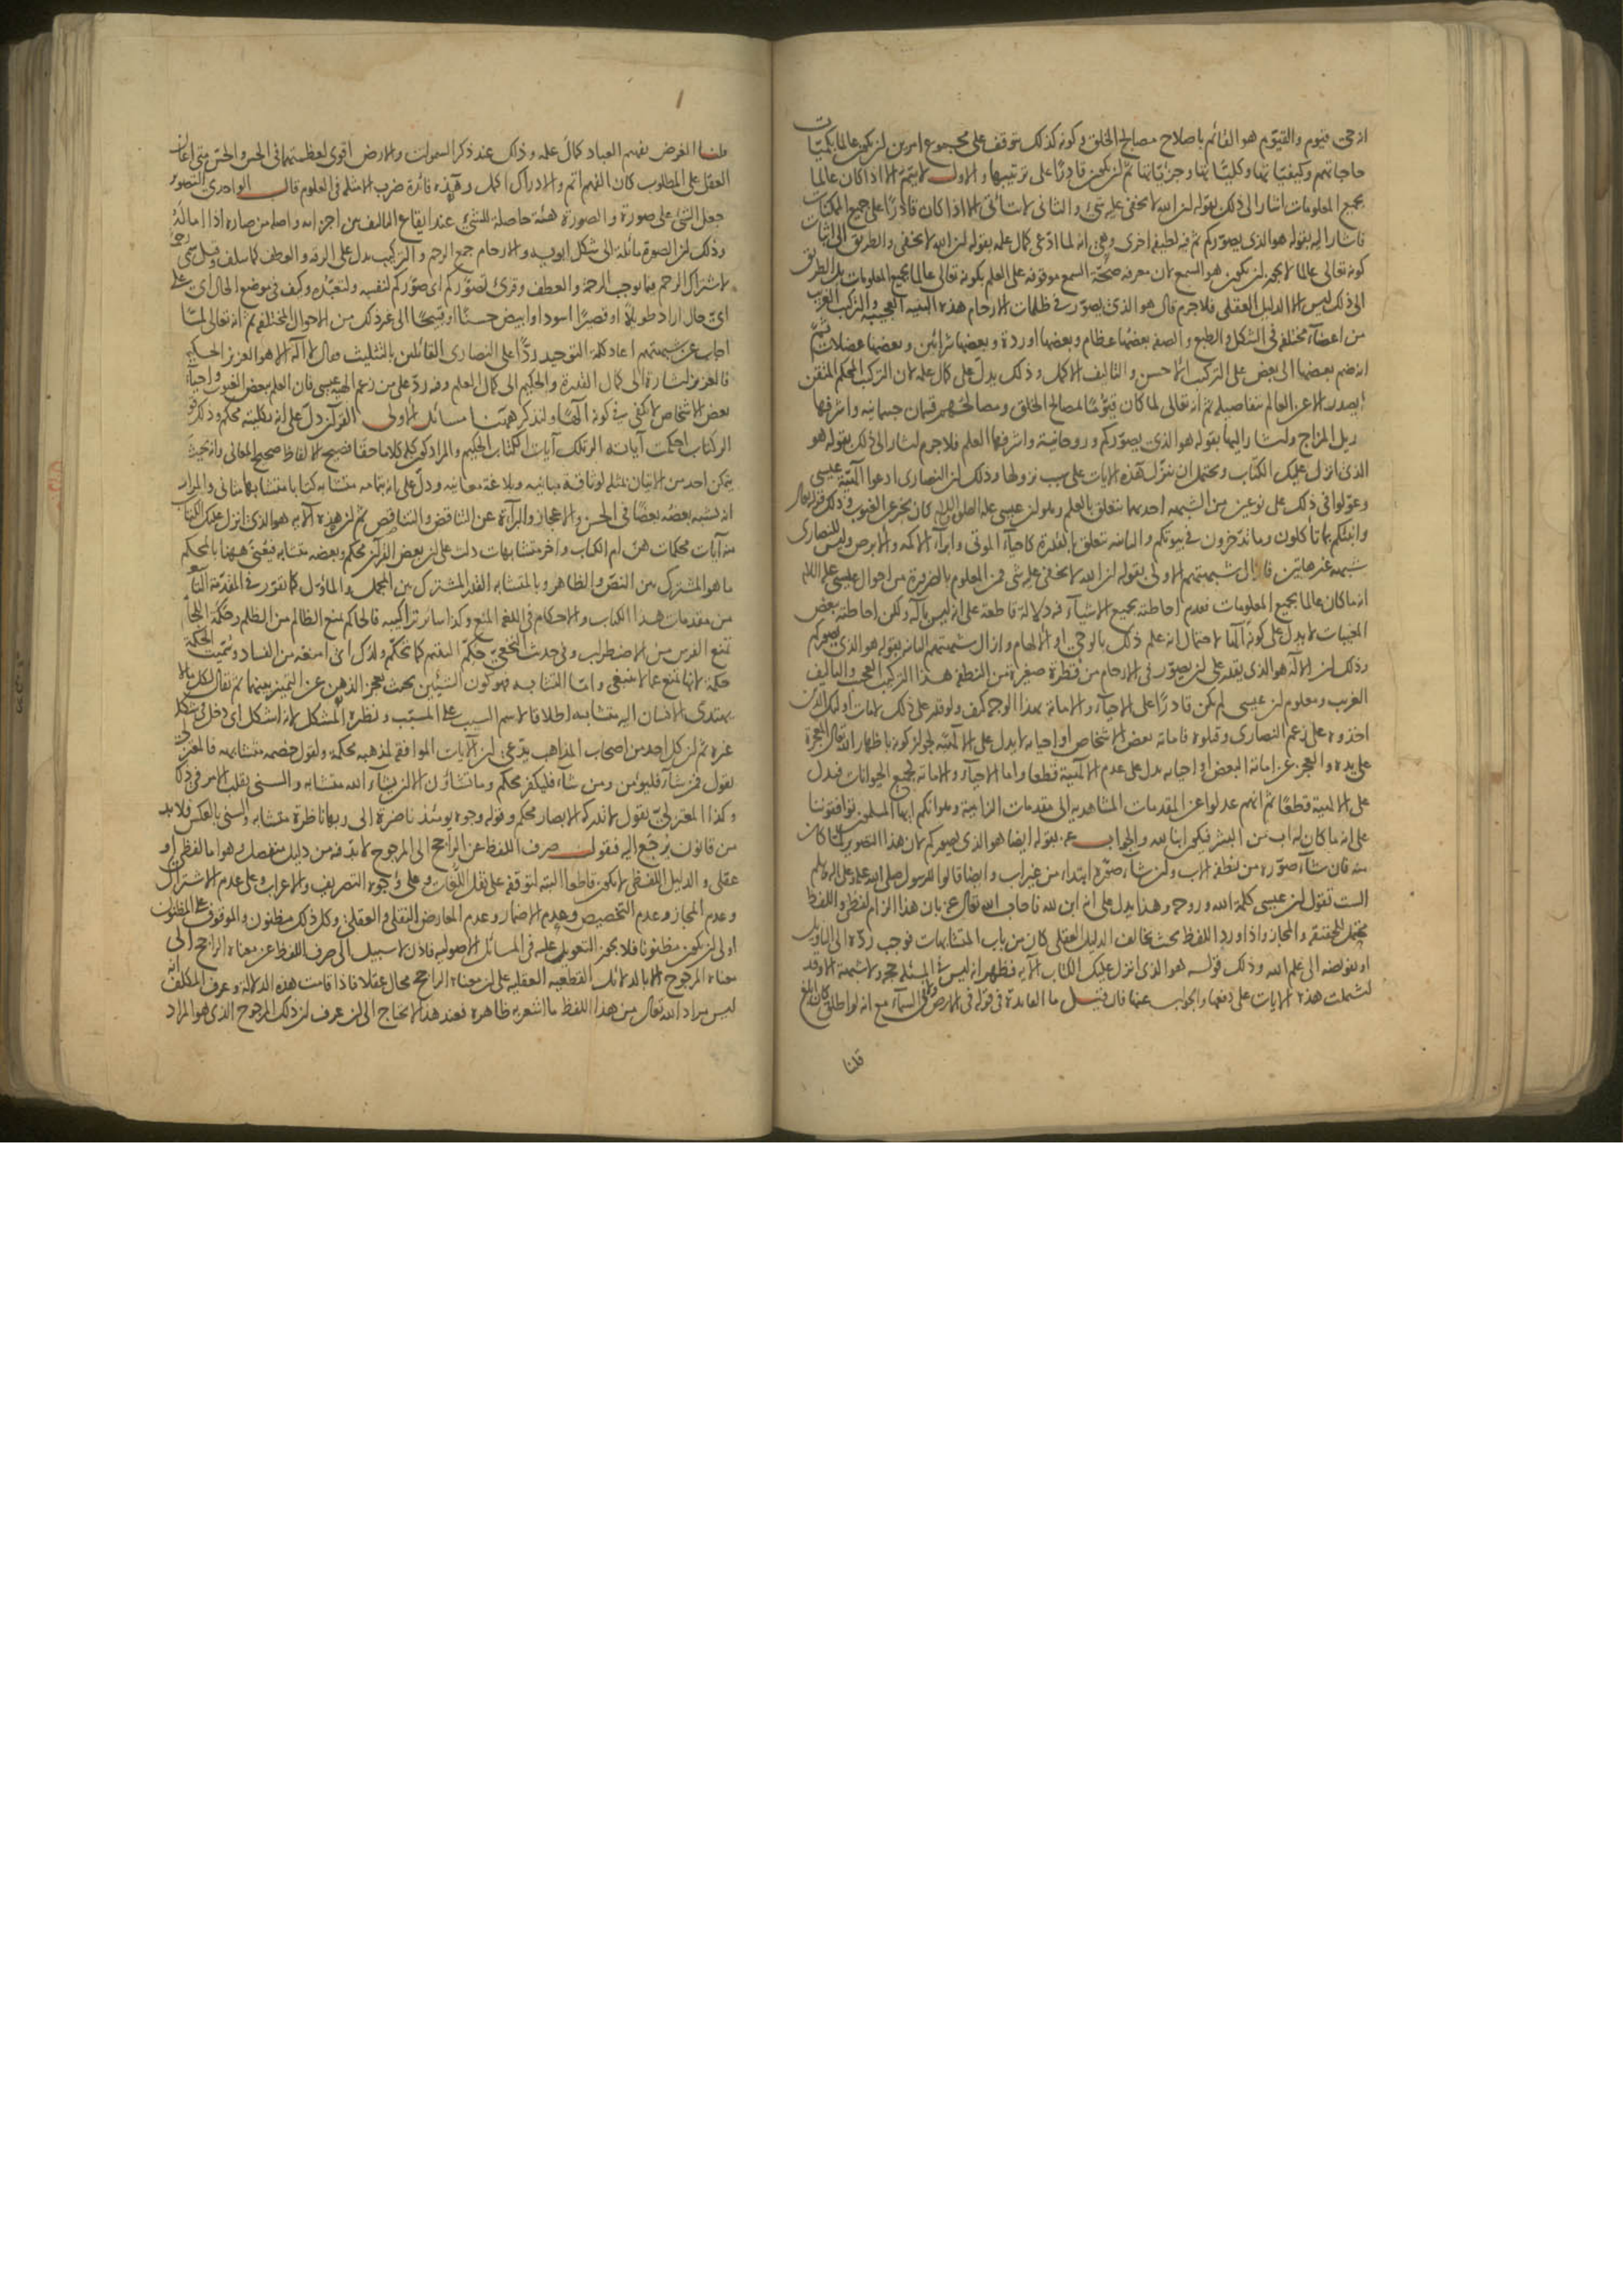 انه حي قيوم والقيوم هو القائم باصلاح مصالح الخلق وكونه كذلك يتوقف على مجموع امرين ان يكون عالما بكميات
حاجاتهم وكيفياتها وكلياتها وجزئياتها ثم ان يكون قادرا على ترتيبها والاول لا يتم الا اذا كان عالما
بجميع المعلومات اشار الى ذلك بقوله ان الله لا يخفى عليه شئ والثانى لا يتاتى الا اذا كان قادرا على جميع الممكنات
فاشار اليه بقوله هو الذى يصوركم ثم فيه لطيفه اخرى وهي انه لما ادعى كمال علمه بقوله ان الله لا يخفى والطريق الى اثبات
كونه تعالى عالما لا يجوز ان يكون هو السمع لان معرفه صحة السمع موقوفه على العلم بكونه تعالى عالما بجميع المعلومات بل الطريق
الى ذلك ليس الا الدليل العقلى فلا جرم قال هو الذى يصور فى ظلمات الارحام هذه البنيه العجيبه والتركيب الغريب
من اعضاء مختلفه فى الشكل والطبع والصفه بعضها عظام وبعضها اوردة وبعضها شرائين وبعضها عضلات ثم
انه ضم بعضها الى بعض على التركيب الاحسن والتاليف الاكمل وذلك يدل على كمال علمه لان التركيب المحكم المتقن
لا يصدر الا عن العالم بتفاصيله ثم انه تعالى لما كان قيوما لمصالح الخلق ومصالحهم قسمان جسمانيه واشرفها
تعديل المزاج واشار اليها بقوله هو الذى يصوركم وروحانية واشرفها العلم فلا جرم اشار الى ذلك بقوله هو
الذى انزل عليك الكتاب ويحتمل ان ننزل هذه الايات على سبب نزولها وذلك ان النصارى ادعوا الهية عيسى
وعولوا فى ذلك على نوعين من الشبهه احدهما يتعلق بالعلم وهو ان عيسى عليه الصلوة والسلام كان يخبر عن الغيوب وذلك قوله تعالى
وانبئكم بما تأكلون وما تدخرون فى بيوتكم والثانيه تتعلق بالقدرة كاحياء الموتى وابراء الاكمه والابرص وليس للنصارى
شبهه غير هاتين فازال شبهتهم الاولى بقوله ان الله لا يخفى عليه شى فمن المعلوم بالضرورة من احوال عيسى عليه السلام
انه ما كان عالما بجميع المعلومات فعدم احاطته بجميع الاشياء فيه دلالة قاطعة على انه ليس باله ولكن احاطته ببعض
المغيبات لا يدل على كونه الها لاحتمال انه علم ذلك بالوحي او الالهام وازال شبهتهم الثانيه بقوله هو الذى يصوركم
وذلك ان الاله هو الذى يقدر على ان يصور فى الارحام من قطرة صغيرة من النطفه هذا التركيب العجيب والتاليف
الغريب ومعلوم ان عيسى لم يكن قادرا على الاحياء والاماتة بهذا الوجه كيف ولو قدر على ذلك لامات اولئك الذين
اخذوه على زعم النصارى وقتلوه فاماته بعض الاشخاص او احيائه لا يدل على الالهيه لجواز كونه باظهار الله تعالى المعجزة
على يده والعجز عن اماتة البعض او احيائه يدل على عدم الالهية قطعا واما الاحياء والاماته لجميع الحيوانات فيدل
على الالهية قطعا ثم انهم عدلوا عن المقدمات المشاهديه الى مقدمات الزامية وهو انكم ايها المسلمون توافقوننا
على انه ما كان له اب من البشر فيكون ابنا لله والجواب عنه بقوله ايضا هو الذى يصوركم لان هذا التصوير لما كان
منه فان شاء صوره من نطفه الاب وان شاء صوره ابتداء من غير اب وايضا قالوا للرسول صلى الله عليه وعلى اله وسلم
الست تقول ان عيسى كلمة الله وروحه وهذا يدل على انه ابن لله فاجاب الله تعالى عنه بان هذا الزام لفظى واللفظ
محتمل للحقيقه والمجاز واذا ورد اللفظ بحيث يخالف الدليل العقلى كان من باب المتشابهات فوجب رده الى التاويل
او تفويضه الى علم الله وذلك قوله هو الذى انزل عليك الكتاب الآيه فظهر انه ليس فى المسئله حجه ولا شبهة الا وقد
اشتملت هذه الايات على دفعها والجواب عنها فان قيل ما الفايدة فى قوله فى الارض ولا فى السماء مع انه لو اطلق كان ابلغ
قلنا
قلنا الغرض تفهيم العباد كمال علمه وذلك عند ذكر السموات والارض اقوى لعظمتهما فى الحس والحس متى اعان
العقل على المطلوب كان الفهم اتم والادراك اكمل وهذه فائدة ضرب الامثله فى العلوم قال الواحدى التصوير
جعل الشئ على صورة والصورة هيئة حاصلة للشئ عند ايقاع التاليف بين اجزائه واصله من صاره اذا اماله
وذلك ان الصورة مائلة الى شكل ابويه والارحام جمع الرحم والتركيب يدل على الرقه والعطف كما سلف وقيل سمى رحما
لاشتراك الرحم فيما يوجب الرحمة والعطف وقرئ تصوركم اى صوركم لنفسه ولتعبده وكيف فى موضع الحال اى على
اى حال اراد طويلا او قصيرا اسود او ابيض حسنا او قبيحا الى غير ذلك من الاحوال المختلفه ثم انه تعالى لما
اجاب عن شبهتهم اعاد كلمة التوحيد ردا على النصارى القائلين بالتثليث فقال لا اله الا هو العزيز الحكيم
فالعزيز اشارة الى كمال القدرة والحكيم الى كمال العلم وفيه رد على من زعم الهيه عيسى فان العلم ببعض الغيوب واحياء
بعض الاشخاص لا يكفى فى كونه الها ولنذكر ههنا مسائل الاولى القرآن دل على انه بكليته محكم وذلك قوله
الر كتاب احكمت آياته الر تلك آيات الكتاب الحكيم والمراد كون كله كلاما حقا فصيح الالفاظ صحيح المعانى وانه بحيث
لا يتمكن احد من الاتيان بمثله لوثاقة مبانيه وبلاغة معانيه ودل على انه بتمامه متشابه كتابا متشابها مثانى والمراد
انه يشبه بعضه بعضا فى الحسن والاعجاز والبرآءة عن التناقض والتناقص ثم ان هذه الآيه هو الذى انزل عليك الكتاب
منه آيات محكمات هن ام الكتاب واخر متشابهات دلت على ان بعض القرآن محكم وبعضه متشابه فيعنى ههنا بالمحكم
ما هو المشترك بين النص والظاهر وبالمتشابه القدر المشترك بين المجمل والماؤول كما تقرر فى المقدمة التاسعه
من مقدمات هذا الكتاب والاحكام فى اللغه المنع وكذا سائر تراكيبه فالحاكم يمنع الظالم من الظلم وحكمة اللجام
تمنع الفرس من الاضطراب وفى حديث النخعي حكم اليتيم كما تحكم ولدك اى امنعه من الفساد وسميت الحكمة
حكمة لانها تمنع عما لا ينبغى واما المتشابه فهو كون الشيئين بحيث يعجز الذهن عن التمييز بينهما ثم يقال لكل ما لا
يهتدى الانسان اليه متشابه اطلاقا لاسم السبب على المسبب ونظيره المشكل لانه اشكل اى دخل فى شكل
غيره ثم ان كل احد من اصحاب المذاهب يدعى ان الآيات الموافقه لمذهبه محكمة ولقول خصمه متشابهه فالمعتزلى
يقول فمن شاء فليؤمن ومن شاء فليكفر محكم وما تشاؤن الا ان يشاء الله متشابه والسنى يقلب الامر فى ذلك
وكذا المعتزلى يقول لا تدركه الابصار محكم وقوله وجوه يومئذ ناضرة الى ربها ناظرة متشابه والسنى بالعكس فلا بد
من قانون يرجع اليه فنقول صرف اللفظ عن الراجح الى المرجوح لا بد فيه من دليل منفصل وهو اما لفظى او
عقلى والدليل اللفظى لا يكون قاطعا البته لتوقفه على نقل اللغات وعلى وجوه التصريف والاعراب وعلى عدم الاشتراك
وعدم المجاز وعدم التخصيص وعدم الاضمار وعدم المعارض النقلى والعقلى وكل ذلك مظنون والموقوف على المظنون
اولى ان يكون مظنونا فلا يجوز التعويل عليه فى المسائل الاصوليه فاذن لا سبيل الى صرف اللفظ عن معناه الراجح الى
معناه المرجوح الا بالدلائل القطعيه العقليه على ان معناه الراجح محال عقلا فاذا قامت هذه الدلالة وعرف المكلف انه
ليس مراد الله تعالى من هذا اللفظ ما اشعر به ظاهره فعند هذا لا يحتاج الى ان يعرف ان ذلك المرجوح الذى هو المراد